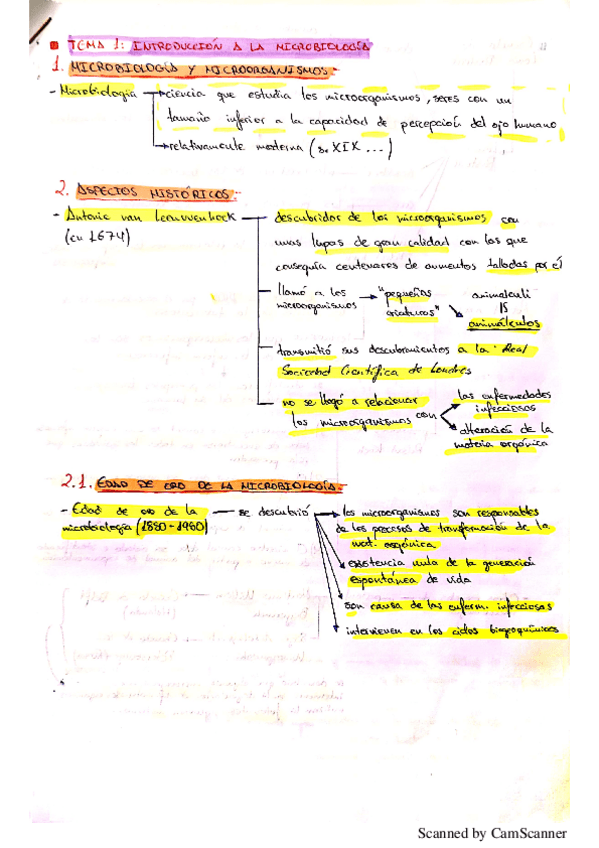 TEMA 1: INTRODUCCIÓN A LA MICROBIOLOGÍA
1. MICROBIOLOGÍA Y MICROORGANISMOS.-
- Microbiología → ciencia que estudia los microorganismos, seres con un
tamaño inferior a la capacidad de percepción del ojo humano
→ relativamente moderna (s. XIX ...)
2. ASPECTOS HISTÓRICOS.-
- Antonie van Leeuwenhoek — descubridor de los microorganismos con
(en 1674) unas lupas de gran calidad con las que
conseguía centenares de aumentos talladas por él
llamó a los → "pequeñas animalculi
microorganismos criaturas" IS
animálculos
transmitió sus descubrimientos a la Real
Sociedad Científica de Londres
no se llegó a relacionar las enfermedades
los microorganismos con infecciosas
alteración de la
materia orgánica
2.1. EDAD DE ORO DE LA MICROBIOLOGÍA.-
- Edad de oro de la — se descubrió → los microorganismos son responsables
microbiología (1880-1980) de los procesos de transformación de la
mat. orgánica
existencia nula de la generación
espontánea de vida
son causa de las enferm. infecciosas
intervienen en los ciclos biogeoquímicos
Scanned by CamScanner